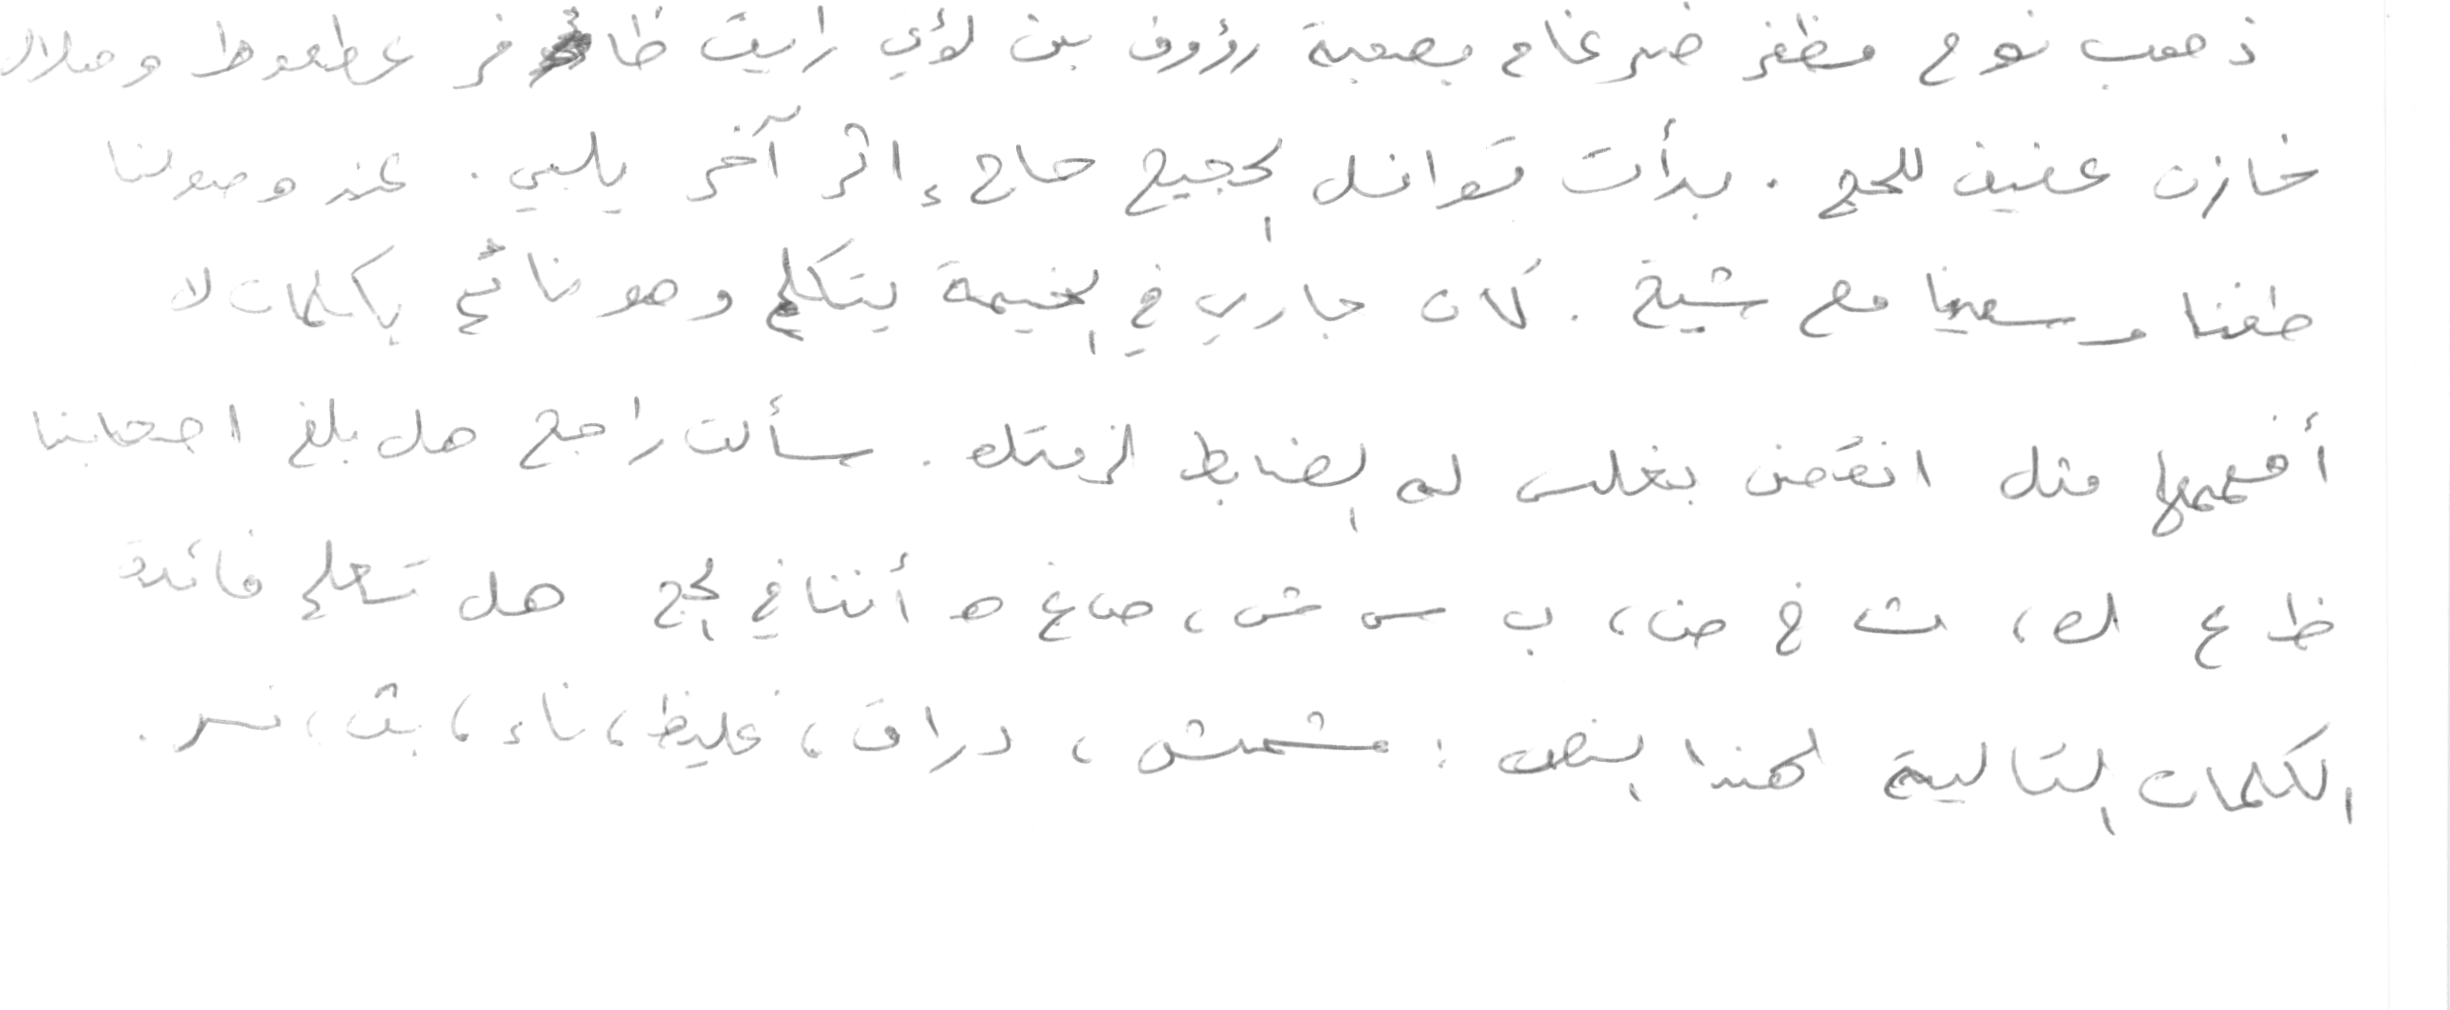 ذهب نوح مظفر ضرغام بصحبة رؤوف بن لؤي رايق ظافر عطعوط وهلال
خازن عفيف للحج . بدأت قوافل الحجيج حاج إثر آخر يلبي . عند وصولنا
طفنا وسعينا مع شيخ . كان جاري في الخيمة يتكلم وهو نائم بكلمات لا
أفهمها مثل انقض بغلس له الضابط لزمتك . سألت راجح هل بلغ اصحابنا
ظ ع ك ، ث خ ض ، ب س ش ، ص غ ه أننا في الحج هل تعلم فائدة
الكلمات التالية لهذا النص : مشمش ، دراق ، غليظ ، ناء ، بث ، نسر .